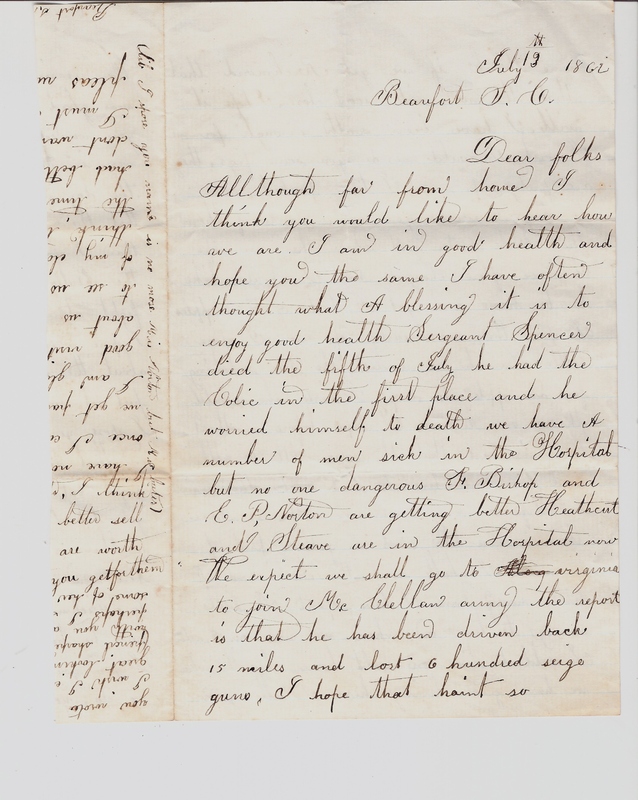 July 13th 1862
Beaufort S. C.
Dear folks
Allthough far from home I
think you would like to hear how
we are. I am in good health and
hope you the same I have often
thought what A blessing it is to
enjoy good health Sergeant Spencer
died the fifth of July he had the
Colic in the first place and he
worried himself to death we have A
number of men sick in the Hospital
but no one dangerous F. Bishop and
E. P. Norton are getting better Heathcut
and Steave are in the Hospital now
We expect we shall go to virginia
to join Mc Clellan army the report
is that he has been driven back
15 miles and lost 6 hundred seige
guns, I hope that haint so
Beaufort
pleas
I must
dont wan
had bett
the time
think i
of my clo
to see us
about us
good visit
I and gl
we get pa
once I a
have no
better sell
are worth
you get
son, of
perhaps I
you a
shape
great
I wish I
you wrote